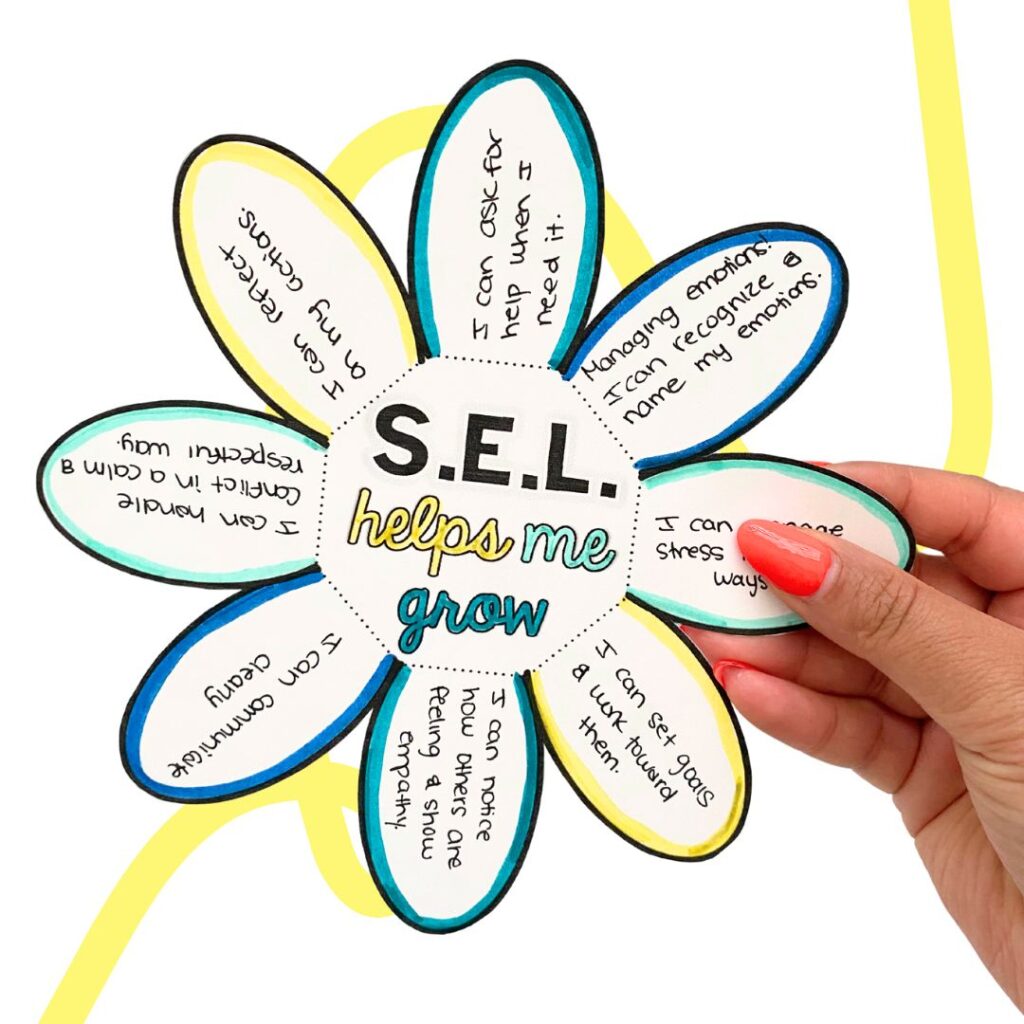 S.E.L.
helps me
grow
I can ask for
help when I
need it.
Managing emotions!
I can recognize &
name my emotions.
I can
ways
I can set goals
& work toward
them.
I can notice
how others are
feeling & show
empathy.
I can communicate
cleary
I can handle
conflict in a calm &
respectful way.
I can reflect
on my actions.